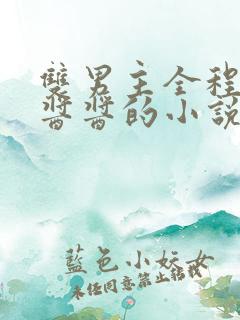 雙男主全程
醬醬的小說
藍色小妖女
未经同意禁止转载